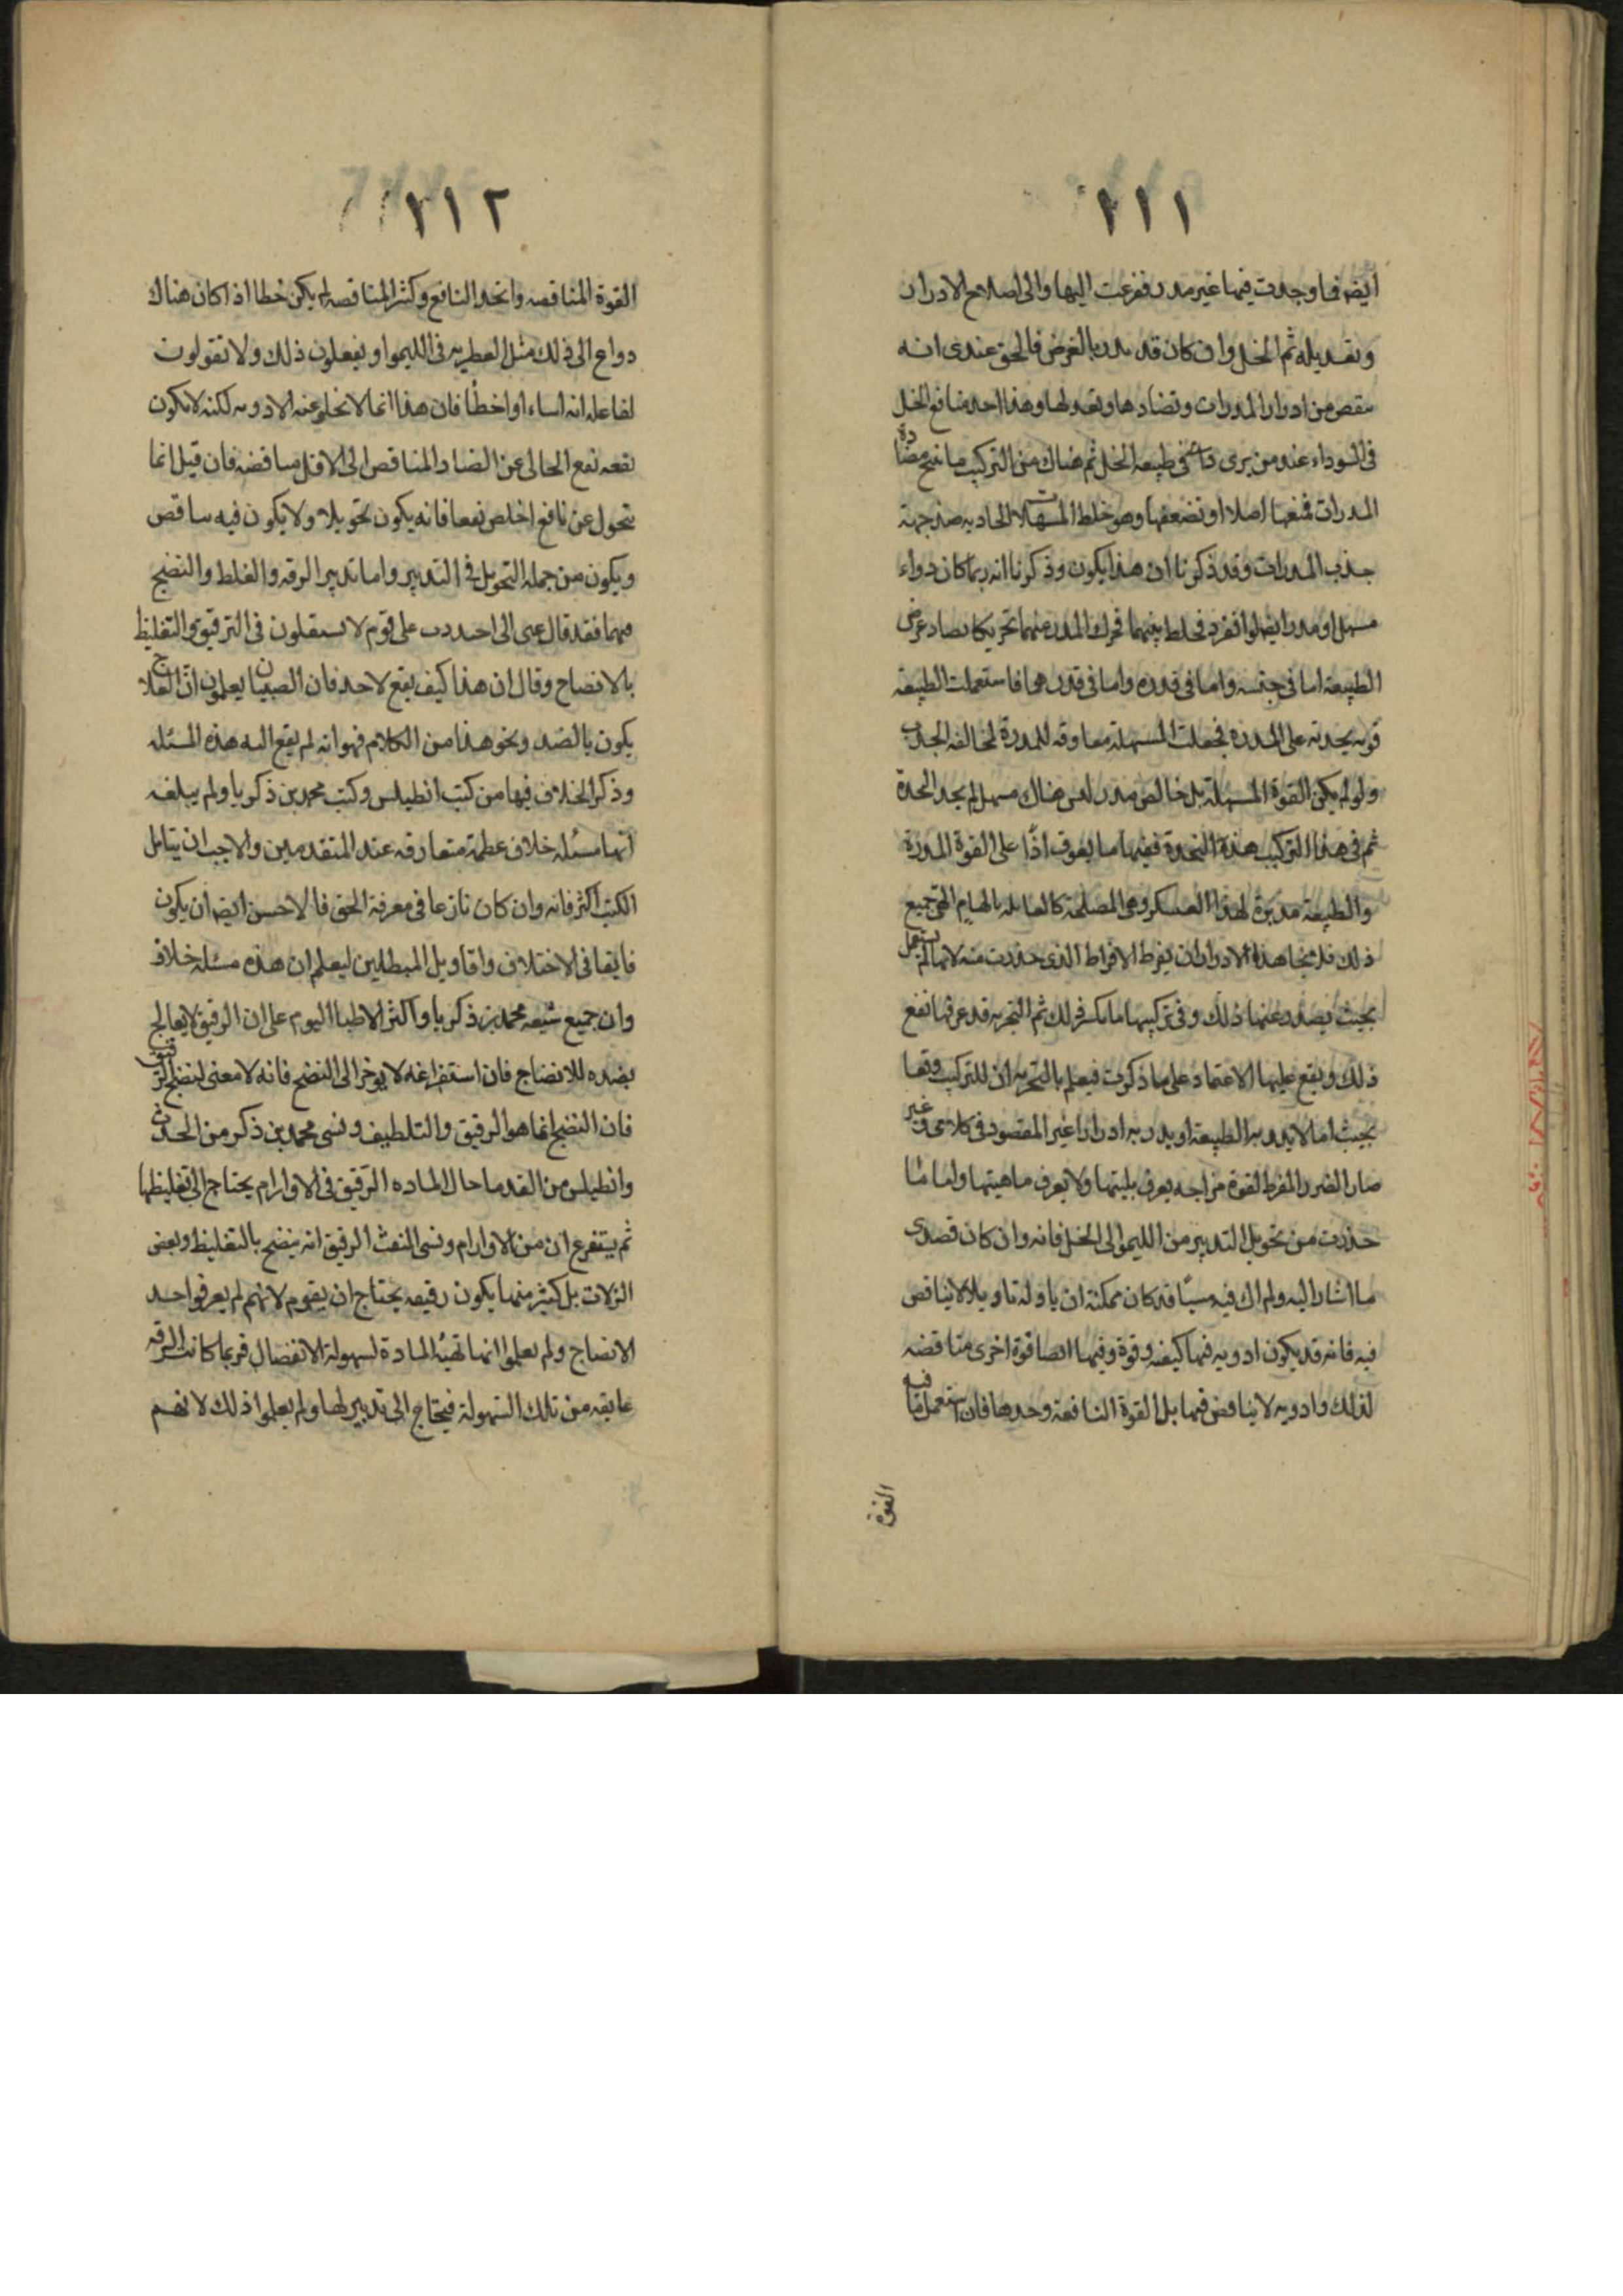 ١١١
ايضا فما وجدت فيها غير مدر ففزعت اليها والى اصلاح الادرار
وتعديله ثم الخل وان كان قد يدر بالعرض فالحق عندى انه
ينقص من ادرار المدرات وتضادها وتعد لها وهذا احد منافع الخل
فى السوداء عند من يرى طبيعة الخل ثم هناك من التركيب ما نتج مضادة
المدرات فمنعها اصلا او تضعفها وهو خلط المسهلات الحادية ضد جهة
جذب المدرات وقد ذكرنا ان هذا يكون وذكرنا انه ربما كان دواء
مسهل او مدر ايهما لو انفرد فخلط بينهما فحرك المدر منهما تحريكا يضاد غرض
الطبيعة اما فى جنسه واما فى قدره واما فى فاستعملت الطبيعة
قوية على المدرة فجعلت المسهلة معاوقة للمدرة لمخالفة الجذب
ولو لم يكن القوة المسهلة بل خالص مدر ليس هناك مسهل لم يجد الحدة
ثم فى هذا التركيب هذه ففيها ما يعوق اذًا على القوة المدرة
والطبيعة مدبرة لهذا العسكر وهى المصلحة كالعاملة بالهام الهى جميع
ذلك فلا هذا الادرار ان يفرط الافراط الذى حذرت منه لانها لم تستعمل
بحيث يصدر عنها ذلك وفى تركيبها ما يكسر ذلك ثم التجربة قد عرفها نفع
ذلك ويقع عليها الاعتماد على ما ذكرت فيعلم بالتجربة ان للتركيب وقفا
بحيث اما لا يدر به الطبيعة او يدر به ادرارا غير المقصود فى كلامى وغير
ضار الضرر المفرط لقوة مزاجه يعرف بليتها ولا يعرف ماهيتها واما ما
حذرت من تحويل التدبير من الليمو الى الخل فانه وان كان قصدى
ما اشار اليه ولم اك فيه كان يمكنه ان ياوله تاويلا لا يناقض
فيه فانه قد يكون ادوية فيها كيفية وقوة وفيها ايضا قوة اخرى مناقضة
لذلك وادوية لا يناقض فيها بل القوة النافعة وحدها فان استعمل ما فيه
القوة
١١٢
القوة المناقضة واتحد النافع وكثر المناقضة لم يكن خطا اذا كان هناك
دواع الى ذلك مثل العطرية فى الليمو او يفعلون ذلك ولا تقولون
لفاعله انه اساء او اخطأ فان هذا انما لا يخلو عنه الادوية لكنه لا يكون
نفعه نفع الخالى عن المضاد المناقض الى الاقل مناقضة فان قيل انما
تتحول عن نافع اخلص نفعا فانه يكون تحويلا ولا يكون فيه مناقض
ويكون من جملة التحويل فى التدبير واما تدبير الرقه والغلظ والنضج
فيهما فقد قال عنى انى احدرب على قوم لا يستقلون فى الترقيق والتغليظ
بالانضاج وقال ان هذا كيف يقع لاحد فان الصبيان يعلمون ان العلاج
يكون بالضد ونحو هذا من الكلام فهو انه لم يقع اليه هذه المسئلة
وذكر الخلاف فيها من كتب انطيلس وكتب محمد بن ذكريا ولم يبلغه
انها مسئله خلاف عظيمة متعارفه عند المتقدمين والاجب ان يتامل
الكتب اكثر فانه وان كان نازعا فى معرفة الحق فالاحسن ايضا ان يكون
فايقا فى الاختلاف واقاويل المبطلين ليعلم ان هذه مسئله خلاف
وان جميع شيعة محمد بن ذكريا واكثر الاطبا اليوم على ان الرقيق لا يعالج
بضده للانضاج فان استفراغه لا يوخر الى النضج فانه لا معنى لنضج الرقيق
فان النضج انما هو الرقيق والتلطيف ونسى محمد بن ذكر من الحدث
وانطيلس من القدما حال الماده الرقيق فى الاورام يحتاج الى تغليظها
ثم يتفرع ان من الاورام ونسى النفث الرقيق انه ينضج بالتغليظ وبعض
النزلات بل كثير منها يكون رقيقه يحتاج ان يقوم لانهم لم يعرفوا حد
الانضاج ولم يعلموا انها تهيئه المادة لسهولة الانفصال فربما كانت الرقه
عايقه من تلك السهولة فيحتاج الى تدبير لها ولم يعلموا ذلك لانهم